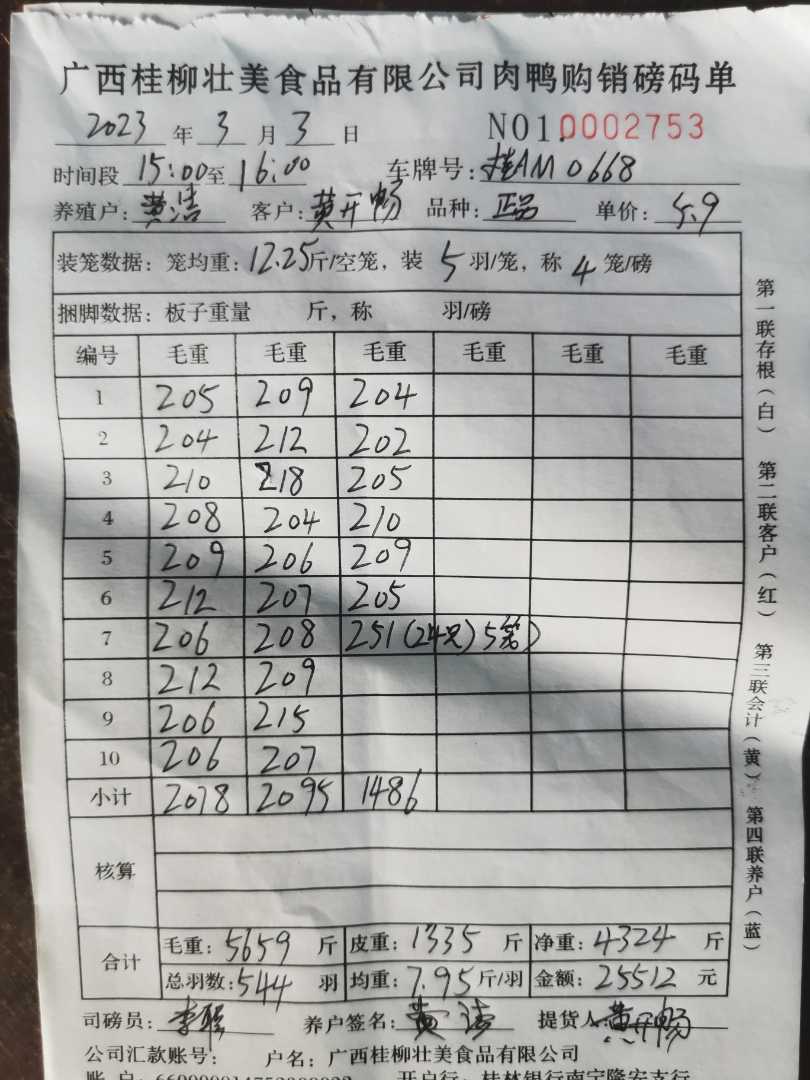 广西桂柳壮美食品有限公司肉鸭购销磅码单
2023 年 3 月 3 日 NO1.0002753
时间段 15:00 至 16:00 车牌号: 桂AM0668
养殖户: 黄洁 客户: 黄开畅 品种: 正品 单价: 5.9
装笼数据: 笼均重: 12.25斤/空笼, 装 5 羽/笼, 称 4 笼/磅
捆脚数据: 板子重量 斤, 称 羽/磅
编号 毛重 毛重 毛重 毛重 毛重 毛重
1 205 209 204
2 204 212 202
3 210 218 205
4 208 204 210
5 209 206 209
6 212 207 205
7 206 208 251(24只)5笼)
8 212 209
9 206 215
10 206 207
小计 2078 2095 1486
核算
合计 毛重: 5659 斤 皮重: 1335 斤 净重: 4324 斤
总羽数: 544 羽 均重: 7.95斤/羽 金额: 25512 元
司磅员: 李 养户签名: 黄洁 提货人: 黄开畅
公司汇款账号: 户名: 广西桂柳壮美食品有限公司
账 户: 开户行: 桂林银行南宁隆安支行
第一联存根(白) 第二联客户(红) 第三联会计(黄) 第四联养户(蓝)